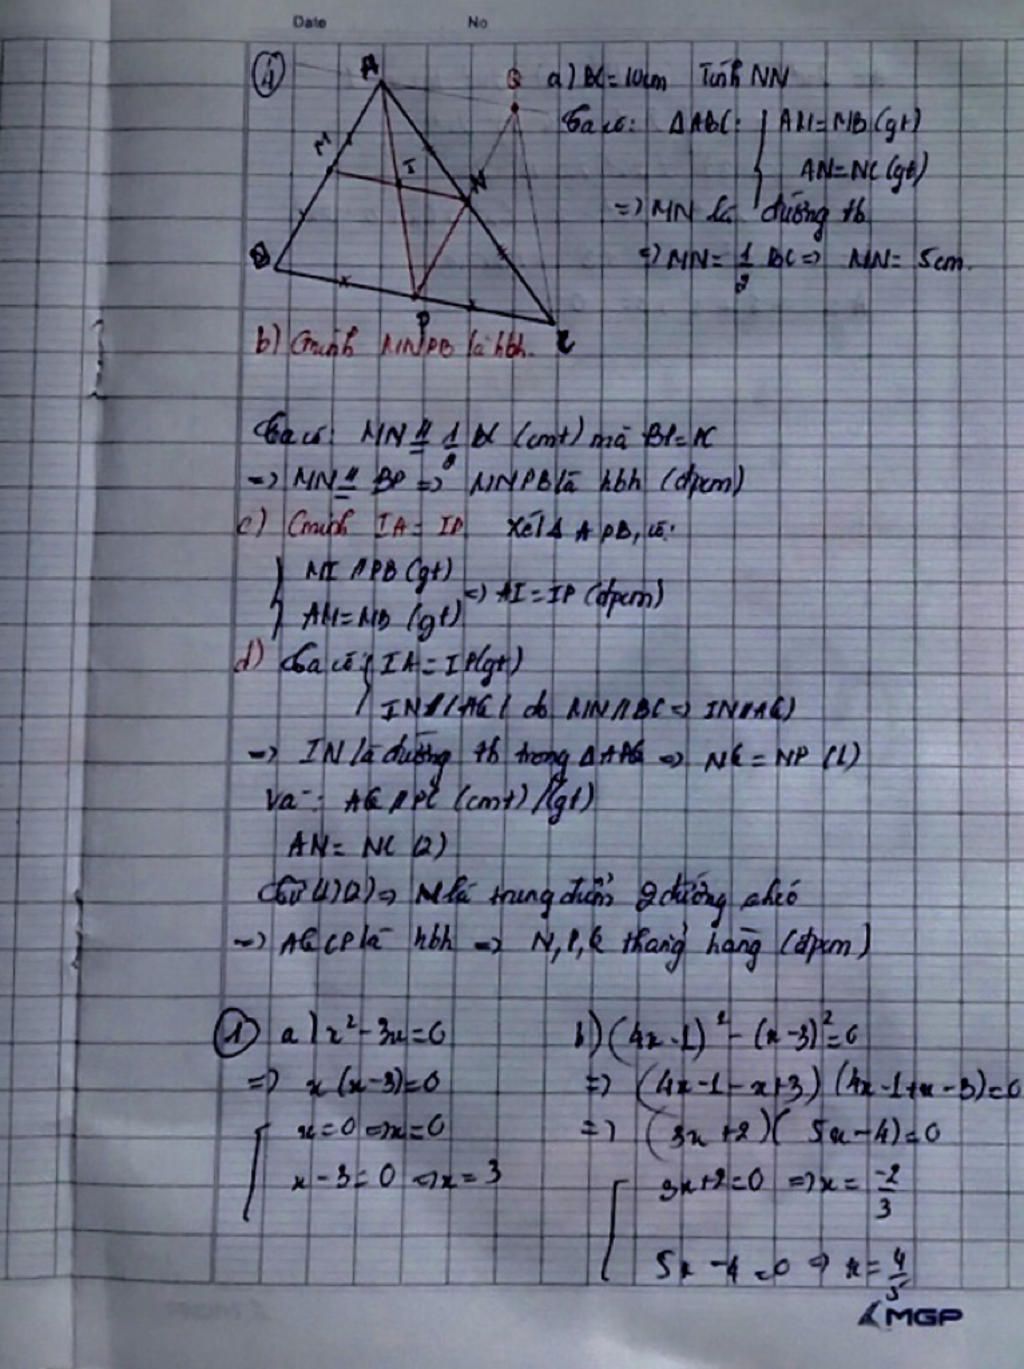 Date No
4 a) BC = 10cm Tính MN
A Q M I N B P C
Ta có: ΔABC: { AM = MB (gt)
AN = NC (gt)
=> MN là đường tb
=> MN = 1/2 BC => MN = 5cm.
b) Cminh MNPB là hbh.
Ta có: MN // = 1/2 BC (cmt) mà BP = PC
=> MN // = BP => MNPB là hbh (đpcm)
c) Cminh IA = IP Xét Δ APB, có:
{ MI // PB (gt)
AM = MB (gt) => AI = IP (đpcm)
d) Ta có { IA = IP (gt)
IN // AQ ( do MN // BC => IN // AQ)
=> IN là đường tb trong ΔAPQ => NQ = NP (1)
Và: AQ // PC (cmt) / (gt)
AN = NC (2)
Từ (1)(2) => N là trung điểm 2 đường chéo
=> AQCP là hbh => N, P, Q thẳng hàng (đpcm)
1 a) x² - 3x = 0 b) (4x - 1)² - (x - 3)² = 0
=> x (x - 3) = 0 => (4x - 1 - x + 3) (4x - 1 + x - 3) = 0
[ x = 0 => x = 0 => (3x + 2) (5x - 4) = 0
x - 3 = 0 => x = 3 [ 3x + 2 = 0 => x = -2/3
5x - 4 = 0 => x = 4/5
MGP